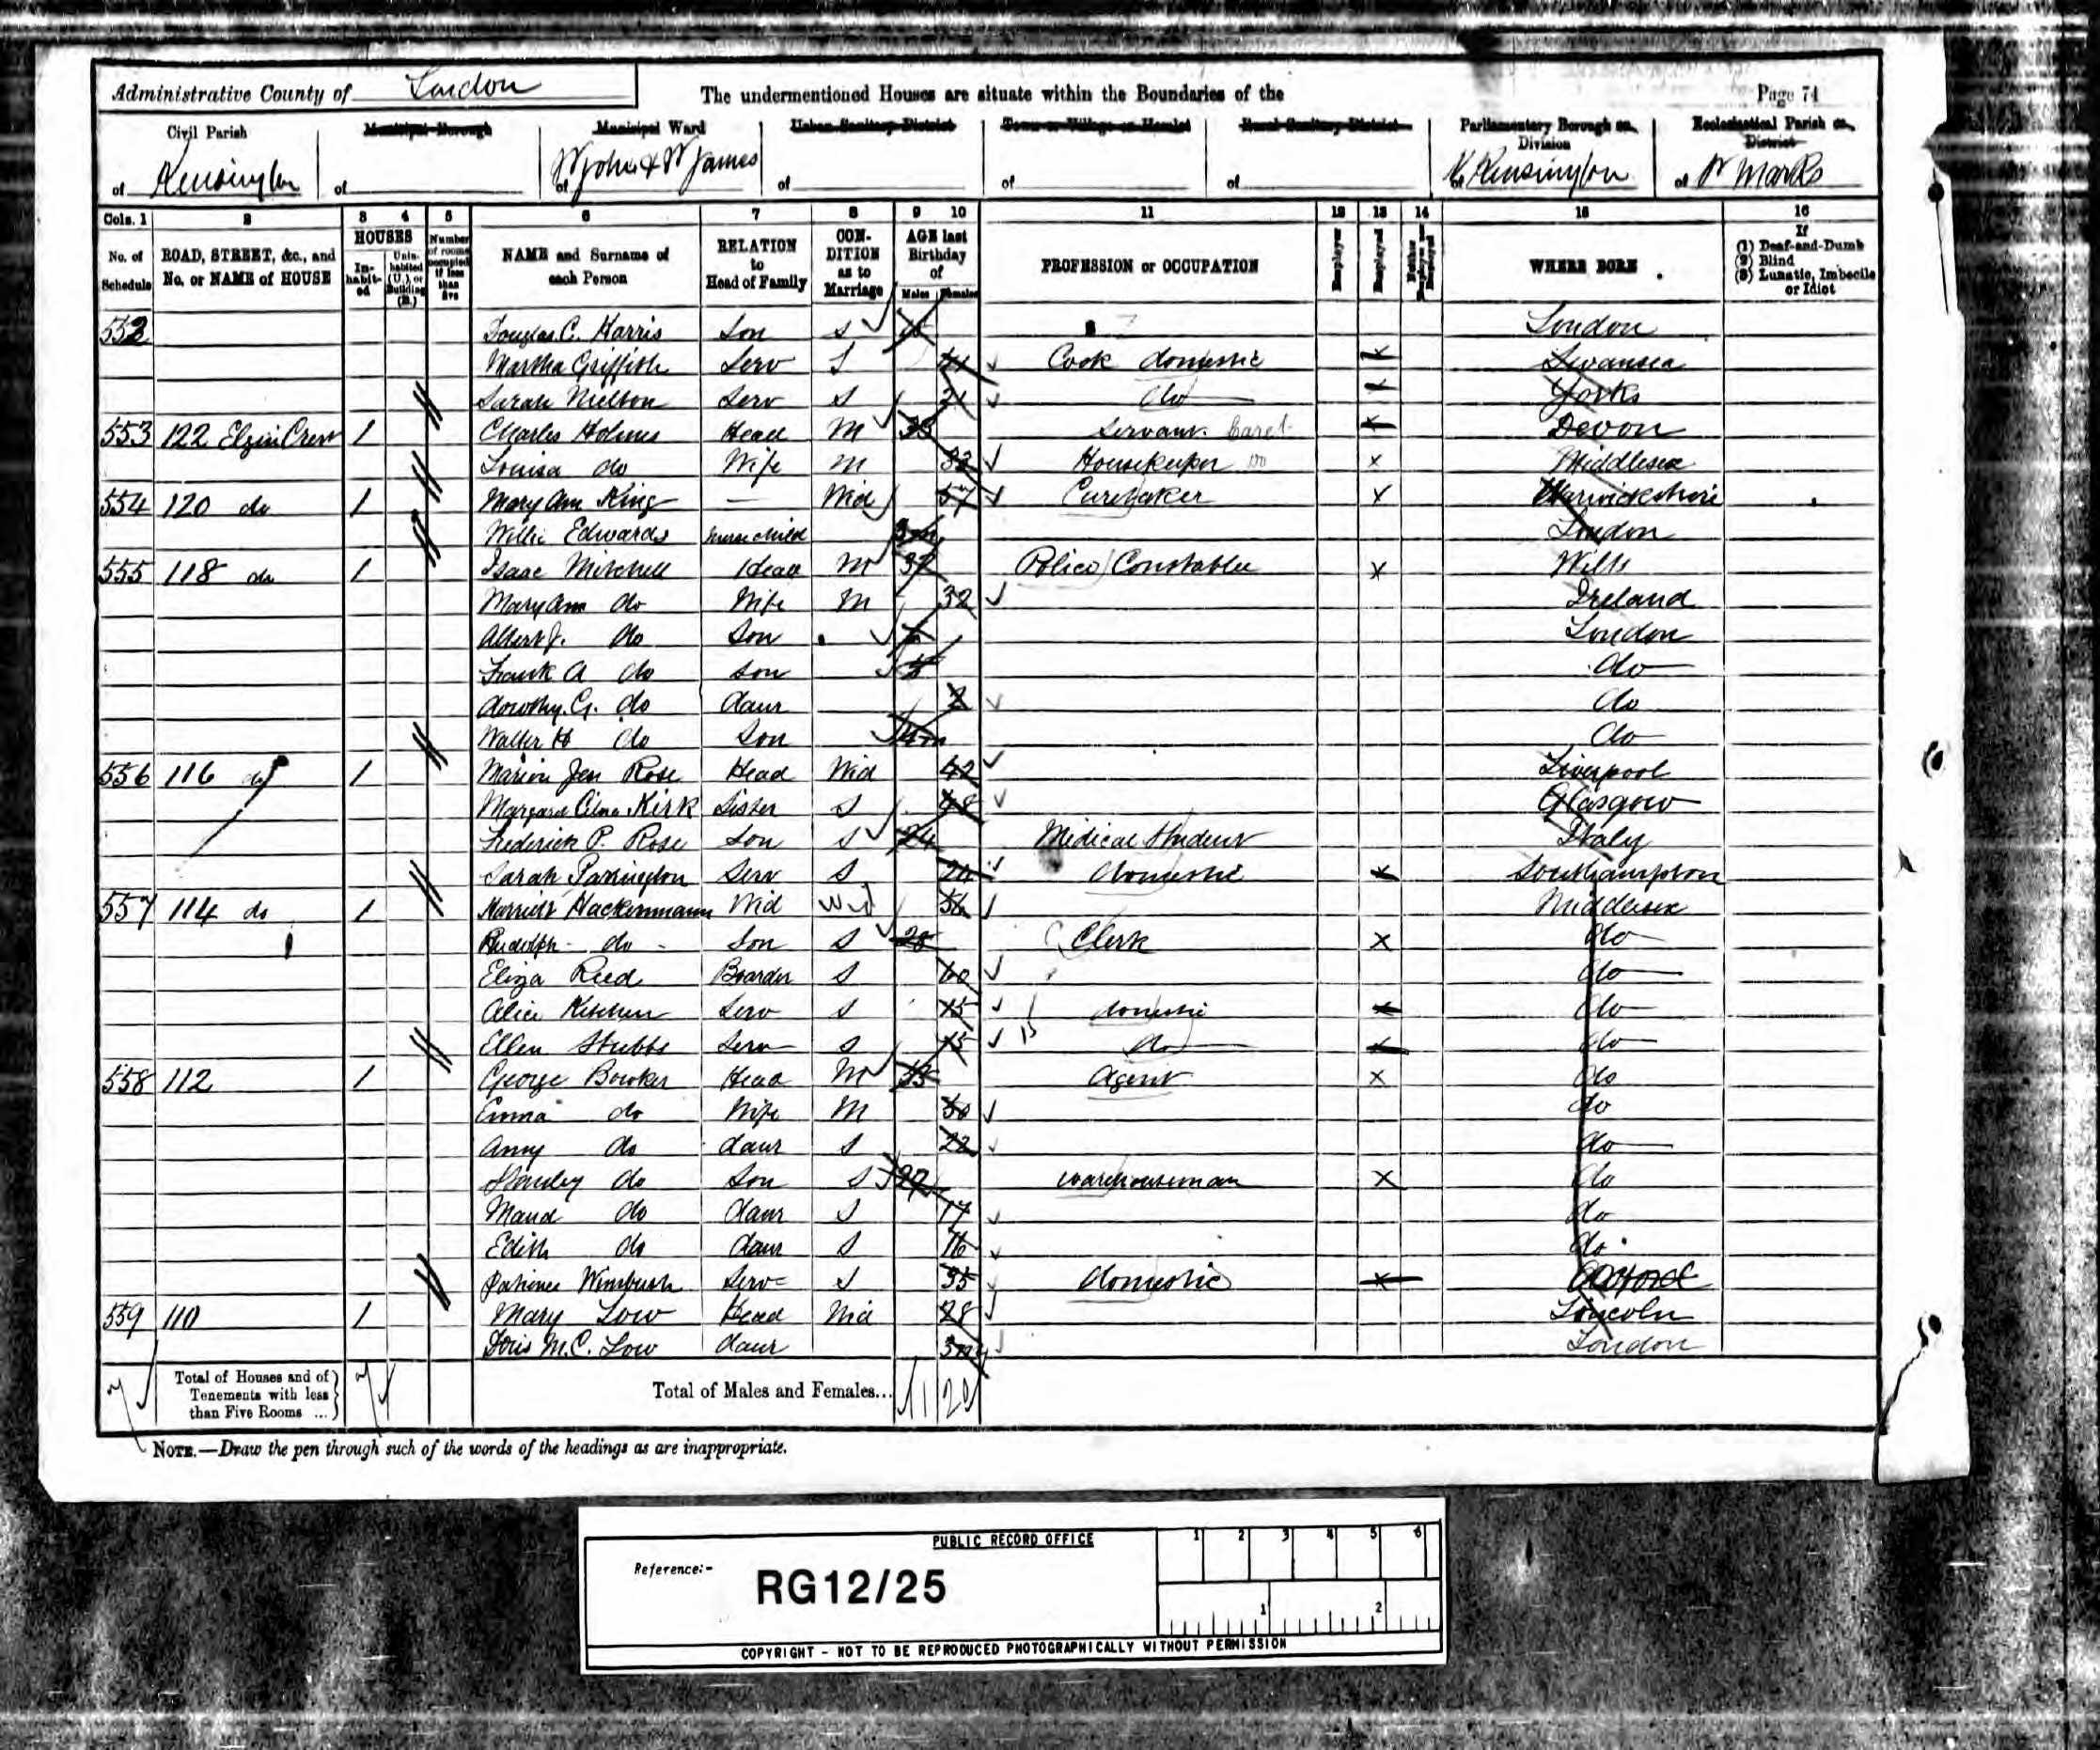 Administrative County of London
The undermentioned Houses are situate within the Boundaries of the
Page 74
Civil Parish of Kensington
Municipal Borough of
Municipal Ward of St John & St James
Urban Sanitary District of
Town or Village or Hamlet of
Rural Sanitary District of
Parliamentary Borough or Division of N. Kensington
Ecclesiastical Parish or District of St Marks
Cols. 1 2 3 4 5 6 7 8 9 10 11 12 13 14 15 16
No. of Schedule
ROAD, STREET, &c., and No. or NAME of HOUSE
HOUSES
Inhabited
Uninhabited (U.), or Building (B.)
Number of rooms occupied if less than five
NAME and Surname of each Person
RELATION to Head of Family
CONDITION as to Marriage
AGE last Birthday of
Males Females
PROFESSION or OCCUPATION
Employer
Employed
Neither Employer nor Employed
WHERE BORN
If (1) Deaf-and-Dumb (2) Blind (3) Lunatic, Imbecile or Idiot
552 Douglas C. Harris Son S London
Martha Griffith Serv S 41 Cook domestic X Swansea
Sarah Serv S 21 do X Yorks
553 122 Elgin Cres 1 Charles Holmes Head M 33 Servant X Devon
Louisa do Wife M 33 Housekeeper do X Middlesex
554 120 do 1 Mary Ann King — Wid 57 Caretaker X Warwickshire
Willie Edwards nurse child London
555 118 do 1 Isaac Mitchell Head M 37 Police Constable X Wilts
Mary Ann do Wife M 32 Ireland
Albert J. do Son London
Frank A do Son do
Dorothy. G. do daur 2 do
Walter H do Son do
556 116 do 1 Marion Rose Head Wid 42 Liverpool
Margaret Kirk Sister S 48 Glasgow
Frederick P. Rose Son S 24 Medical Student Italy
Sarah Serv S domestic X Southampton
557 114 do 1 Harriett Hackenmann Wid Wid 56 Middlesex
Rudolph do Son S 28 Clerk X do
Eliza Reed Boarder S 60 do
Alice Kitchen Serv S 15 domestic X do
Ellen Stubbs Serv S 15 do X do
558 112 1 George Bowker Head M 53 Agent X do
Emma do Wife M 50 do
Amy do daur S 22 do
Stanley do Son S Warehouseman X do
Maud do daur S 17 do
Edith do daur S 16 do
Patience Wimbush Serv S 35 domestic X Oxford
559 110 1 Mary Low Head Wid 28 Lincoln
Doris M.C. Low daur London
7 Total of Houses and of Tenements with less than Five Rooms ... 7
Total of Males and Females... 11 20
NOTE.—Draw the pen through such of the words of the headings as are inappropriate.
PUBLIC RECORD OFFICE
1 2 3 4 5 6
Reference:-
RG12/25
1 2
COPYRIGHT - NOT TO BE REPRODUCED PHOTOGRAPHICALLY WITHOUT PERMISSION